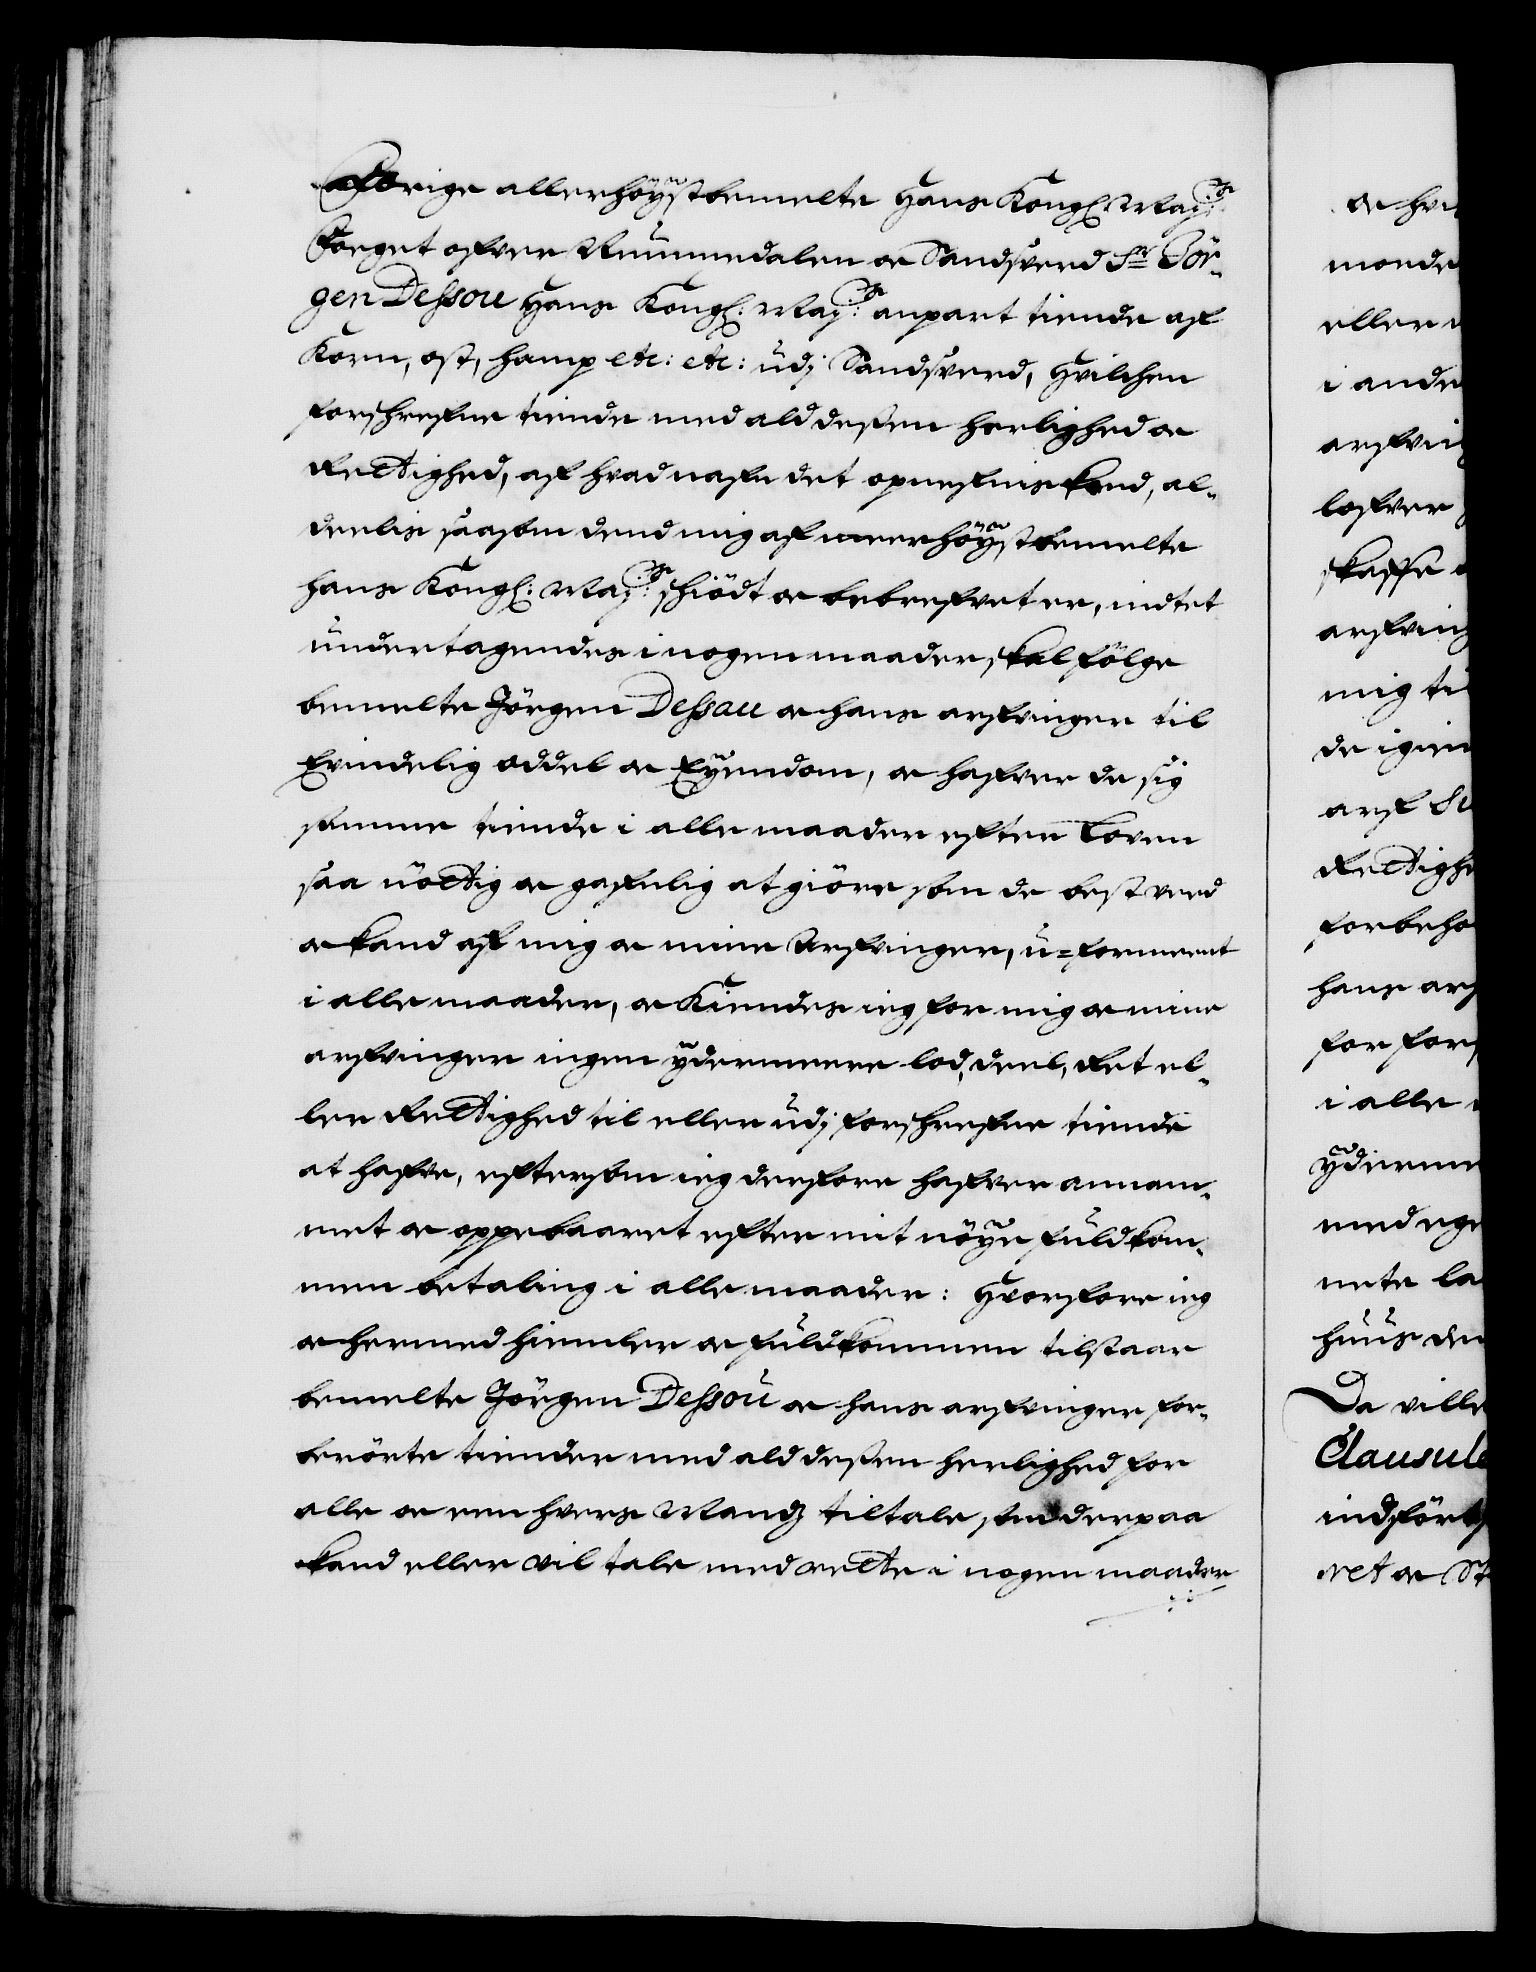 forige allerhöystbemelte Hans Kongl: May:ts
Foeget ofver Nummedalen oc Sandsverd Sr Jör-
gen Dessou Hans Kongl: May:ts anpart tiende af
Korn, ost, hamp etc: etc: udj Sandsverd, Hvilchen
forschrefne tiende med ald dessen herlighed oc
Rettighed, af hvad nafn det opnefnis kand, al-
deelis saasom dend mig af meerhöystbemelte
hans Kongl: May:ts schiödt oc bebrefvet er, indtet
undertagendes i nogen maader, skal fölge
bemelte Jörgen Dessau oc hans arfvinger til
Evindelig oddel oc Eyendom, oc hafver de sig
samme tiende i alle maader efter Loven
saa nöttig oc gafnlig at giöre som de best veed
oc kand af mig oc mine Arfvinger, u=formeent
i alle maader, oc Kiendes ieg for mig oc mine
arfvinger ingen ydermeere lod, deel, Ret el-
ler Rettighed til eller udj forschrefne tiende
at hafve, eftersom ieg derfore hafver annam-
met oc oppebaaret efter mit nöye fuldkom-
men betaling i alle maader: Hvorfore ieg
oc hermed hiemler oc fuldkommen tilstaar
bemelte Jörgen Dessou oc hans arfvinger for-
berörte tiender med ald dessen herlighed for
alle oc een hvers Mandz tiltale, som derpaa
kand eller vil tale med rette i nogen maader
oc hvi
monde
eller
i ande
arfvin
lofver
skaffe
arfving
mig til
de igien
arf
Rettighe
forbeho
hans arf
for fors
i alle
ydermee
med ege
nete la
huus den
Da ville
Clausule
indfört
ret oc St